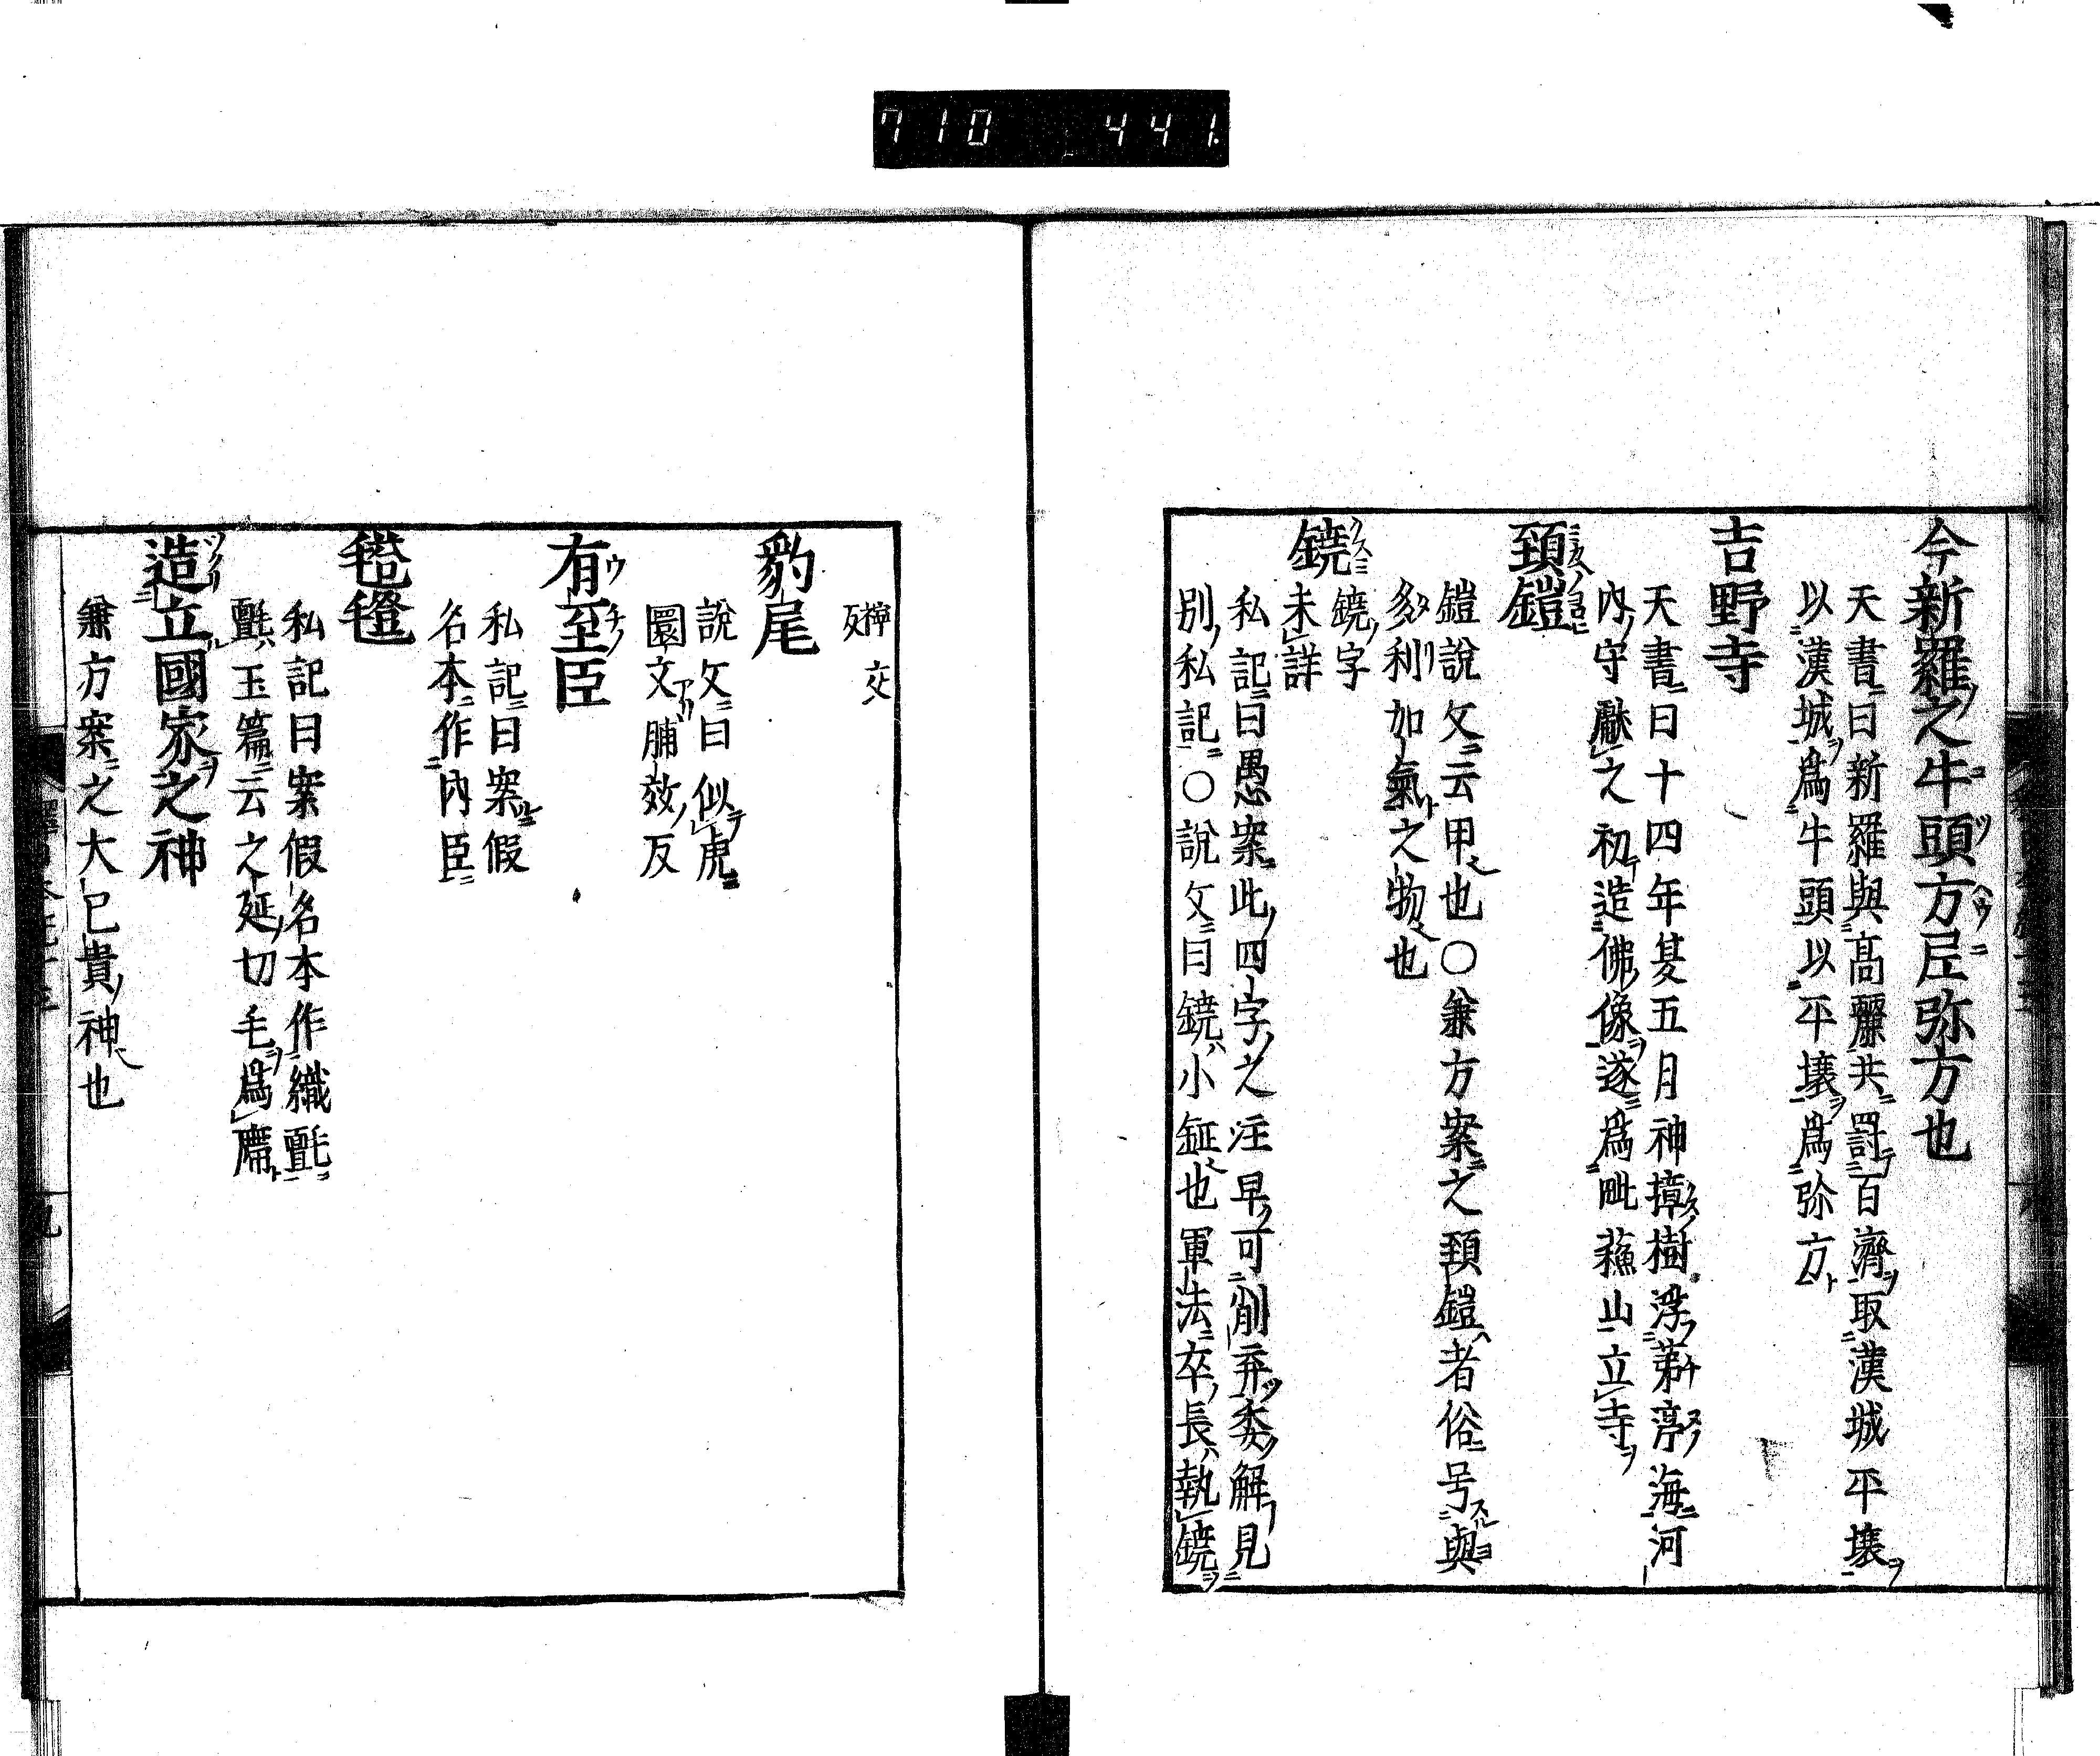 710 441.
今新羅之牛頭方𡰱弥方也
天書曰新羅與髙麗共罸百濟取漢城平壤
以漢城為牛頭以平壤為弥方
吉野寺
天書曰十四年夏五月神樟樹浮茅渟海河
内守獻之初造佛像遂為毗蘓山立寺
頚鎧
鎧說文云甲也○兼方案之頚鎧者俗号與
多利加氣之物也
鐃
鐃字
未詳
私記曰愚案此四字之注早可削弃委解見
別私記○說文曰鐃小鉦也軍法卒長執鐃
檸交
反
豹尾
說文曰似虎
圜文脯效反
有至臣
私記曰案假
名本作内臣
毾㲪
私記曰案假名本作織氈
氈玉篇云之延切毛為席
造立國家之神
兼方案之大已貴神也